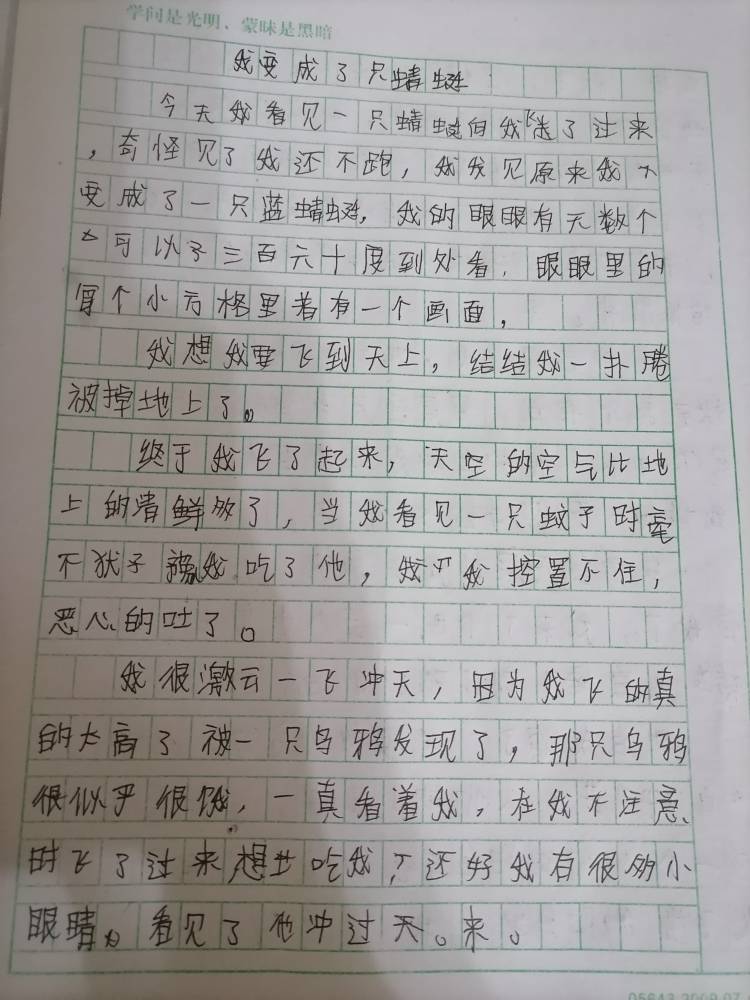 学问是光明、蒙昧是黑暗
我变成了只蜻蜓
今天我看见一只蜻蜓向我飞了过来
，奇怪见了我还不跑，我发见原来我
变成了一只蓝蜻蜓，我的眼眼有无数个
可以子三百六十度到处看，眼眼里的
个小方格里者有一个画面，
我想我要飞到天上，结结我一扑腾
被掉地上了。
终于我飞了起来，天空的空气比地
上的清鲜多了，当我看见一只蚊子时毫
不犹子豫我吃了他，我我控置不住，
恶心的吐了。
我很激云一飞冲天，因为我飞的真
的太高了被一只乌鸦发现了，那只乌鸦
很似乎很饿，一真看着我，在我不注意、
时飞了过来想吃我，还好我有很多小
眼睛。看见了他冲过天。来。